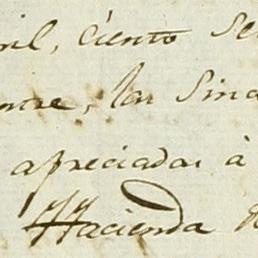 mil, ciento se
ntre, las Sind
apreciadas à
Hacienda